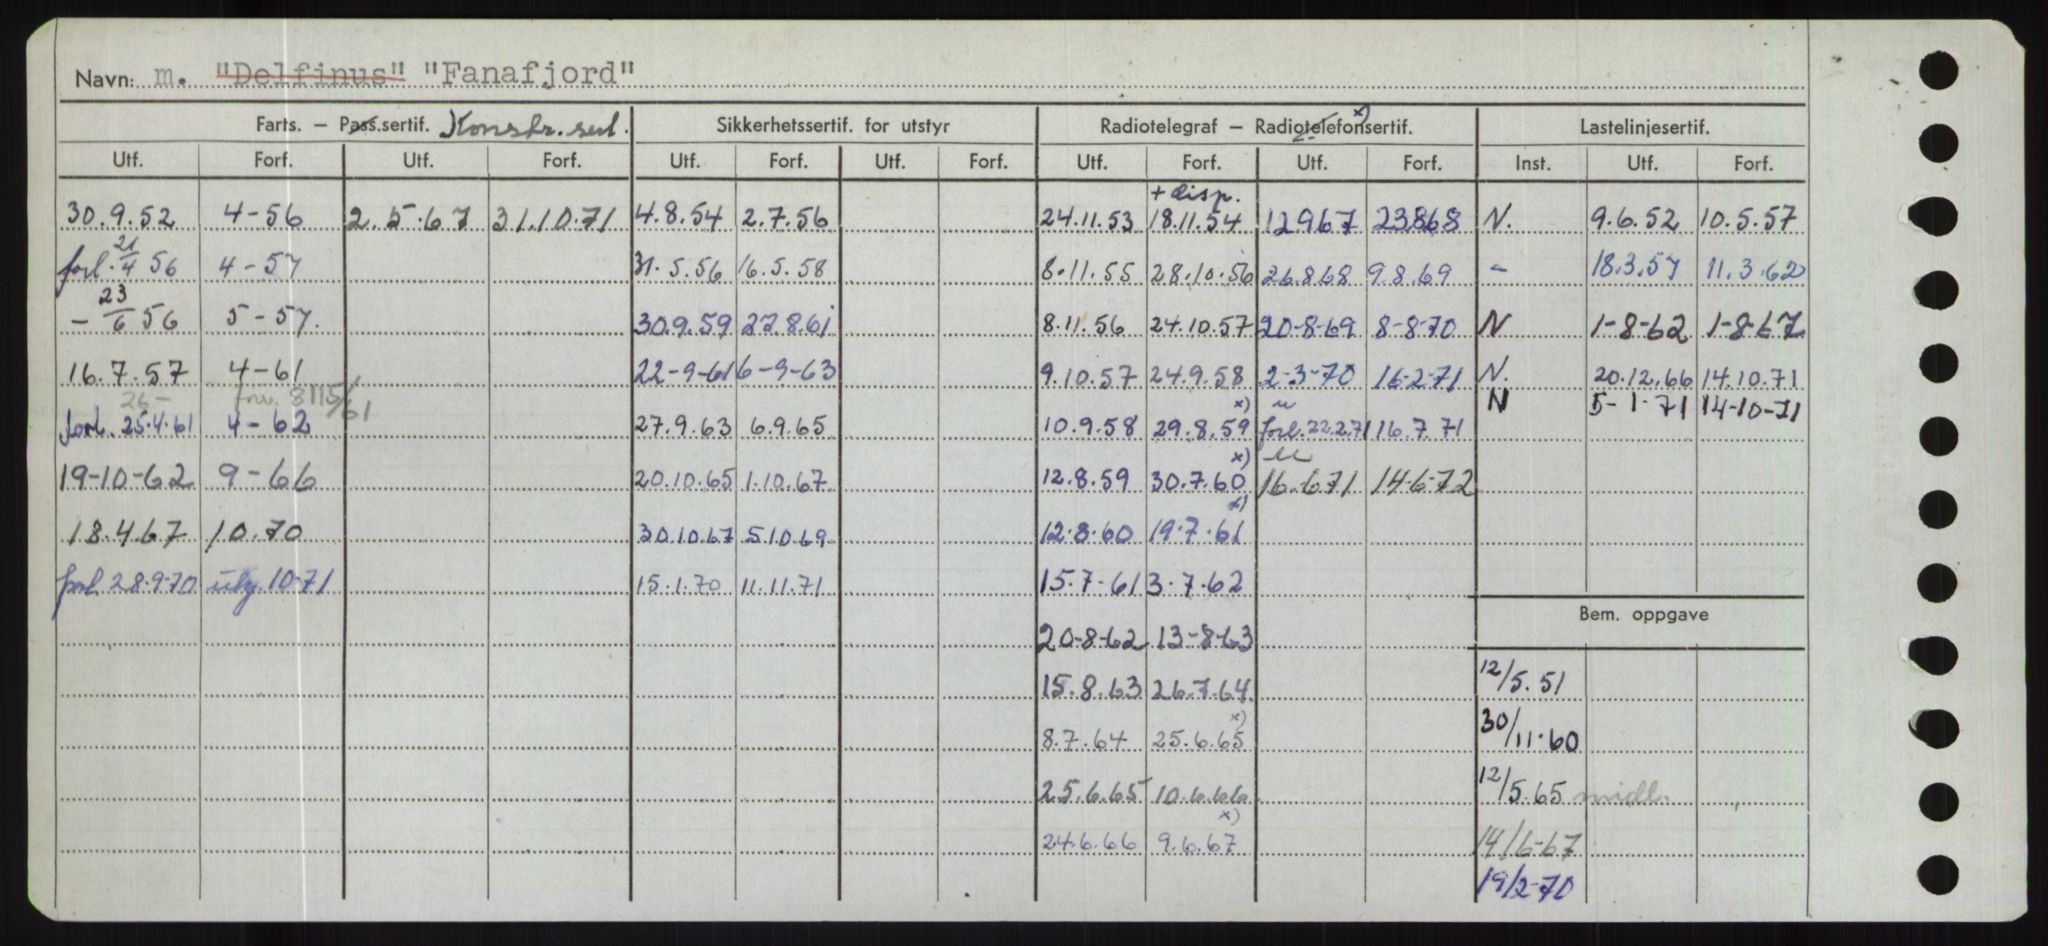 Navn: m. "Delfinus" "Fanafjord"
Farts. – Pass.sertif. Konstr. sert. Sikkerhetssertif. for utstyr Radiotelegraf – Radiotelefonsertif. x) Lastelinjesertif.
Utf. Forf. Utf. Forf. Utf. Forf. Utf. Forf. Utf. Forf. Utf. Forf. Inst. Utf. Forf.
+ disp.
30.9.52 4-56 2.5.67 31.10.71 4.8.54 2.7.56 24.11.53 18.11.54 12967 23868 N. 9.6.52 10.5.57
forl. 21/4 56 4-57 31.5.56 16.5.58 8.11.55 28.10.56 26.8.68 9.8.69 - 18.3.57 11.3.62
- 23/6 56 5-57. 30.9.59 22.8.61 8.11.56 24.10.57 20-8-69 8-8-70 N 1-8-62 1-8-67
16.7.57 4-61 22-9-61 6-9-63 9.10.57 24.9.58 2-3-70 16-2-71 N. 20.12.66 14.10.71
26- 8115/61 x) N 5-1-71 14-10-71
forl. 25.4.61 4-62 27.9.63 6.9.65 10.9.58 29.8.59 forl. 22.2.71 16.7 71
x)
19-10-62 9-66 20.10.65 1.10.67 12.8.59 30.7.60 16.6.71 14.6.72
x)
18.4.67 10.70 30.10.67 5.10.69 12.8.60 19.7.61
forl 28.9.70 utg. 10-71 15.1.70 11.11.71 15.7-61 3.7.62
Bem. oppgave
20-8-62 13-8-63
15.8.63 26.7.64 12/5.51
x)
8.7.64 25.6.65 30/11-60
25.6.65 10.6.66 12/5.65 midl.
x)
24.6.66 9.6.67 14/6-67
19/2-70